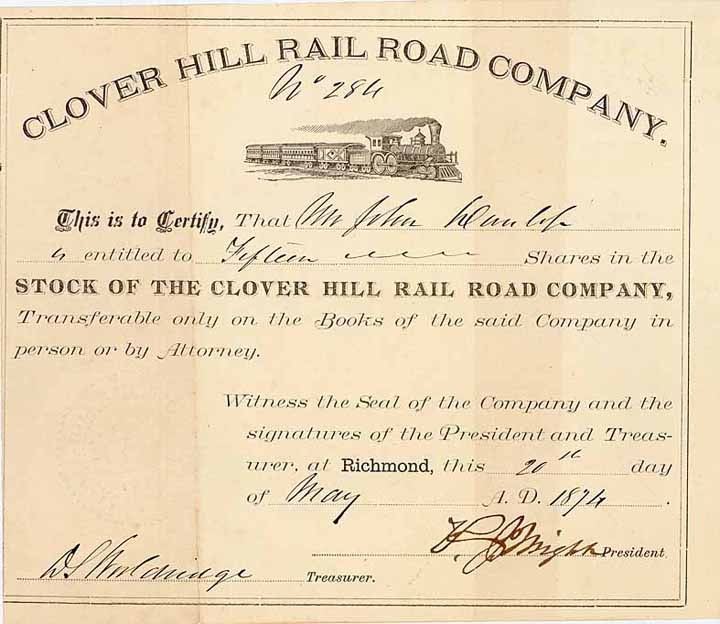 CLOVER HILL RAIL ROAD COMPANY.
No 284
This is to Certify, That Mr John Dunlop
is entitled to Fifteen Shares in the
STOCK OF THE CLOVER HILL RAIL ROAD COMPANY,
Transferable only on the Books of the said Company in
person or by Attorney.
Witness the Seal of the Company and the
signatures of the President and Treas-
urer, at Richmond, this 20th day
of May A. D. 1874.
President
D S Wooldridge Treasurer.